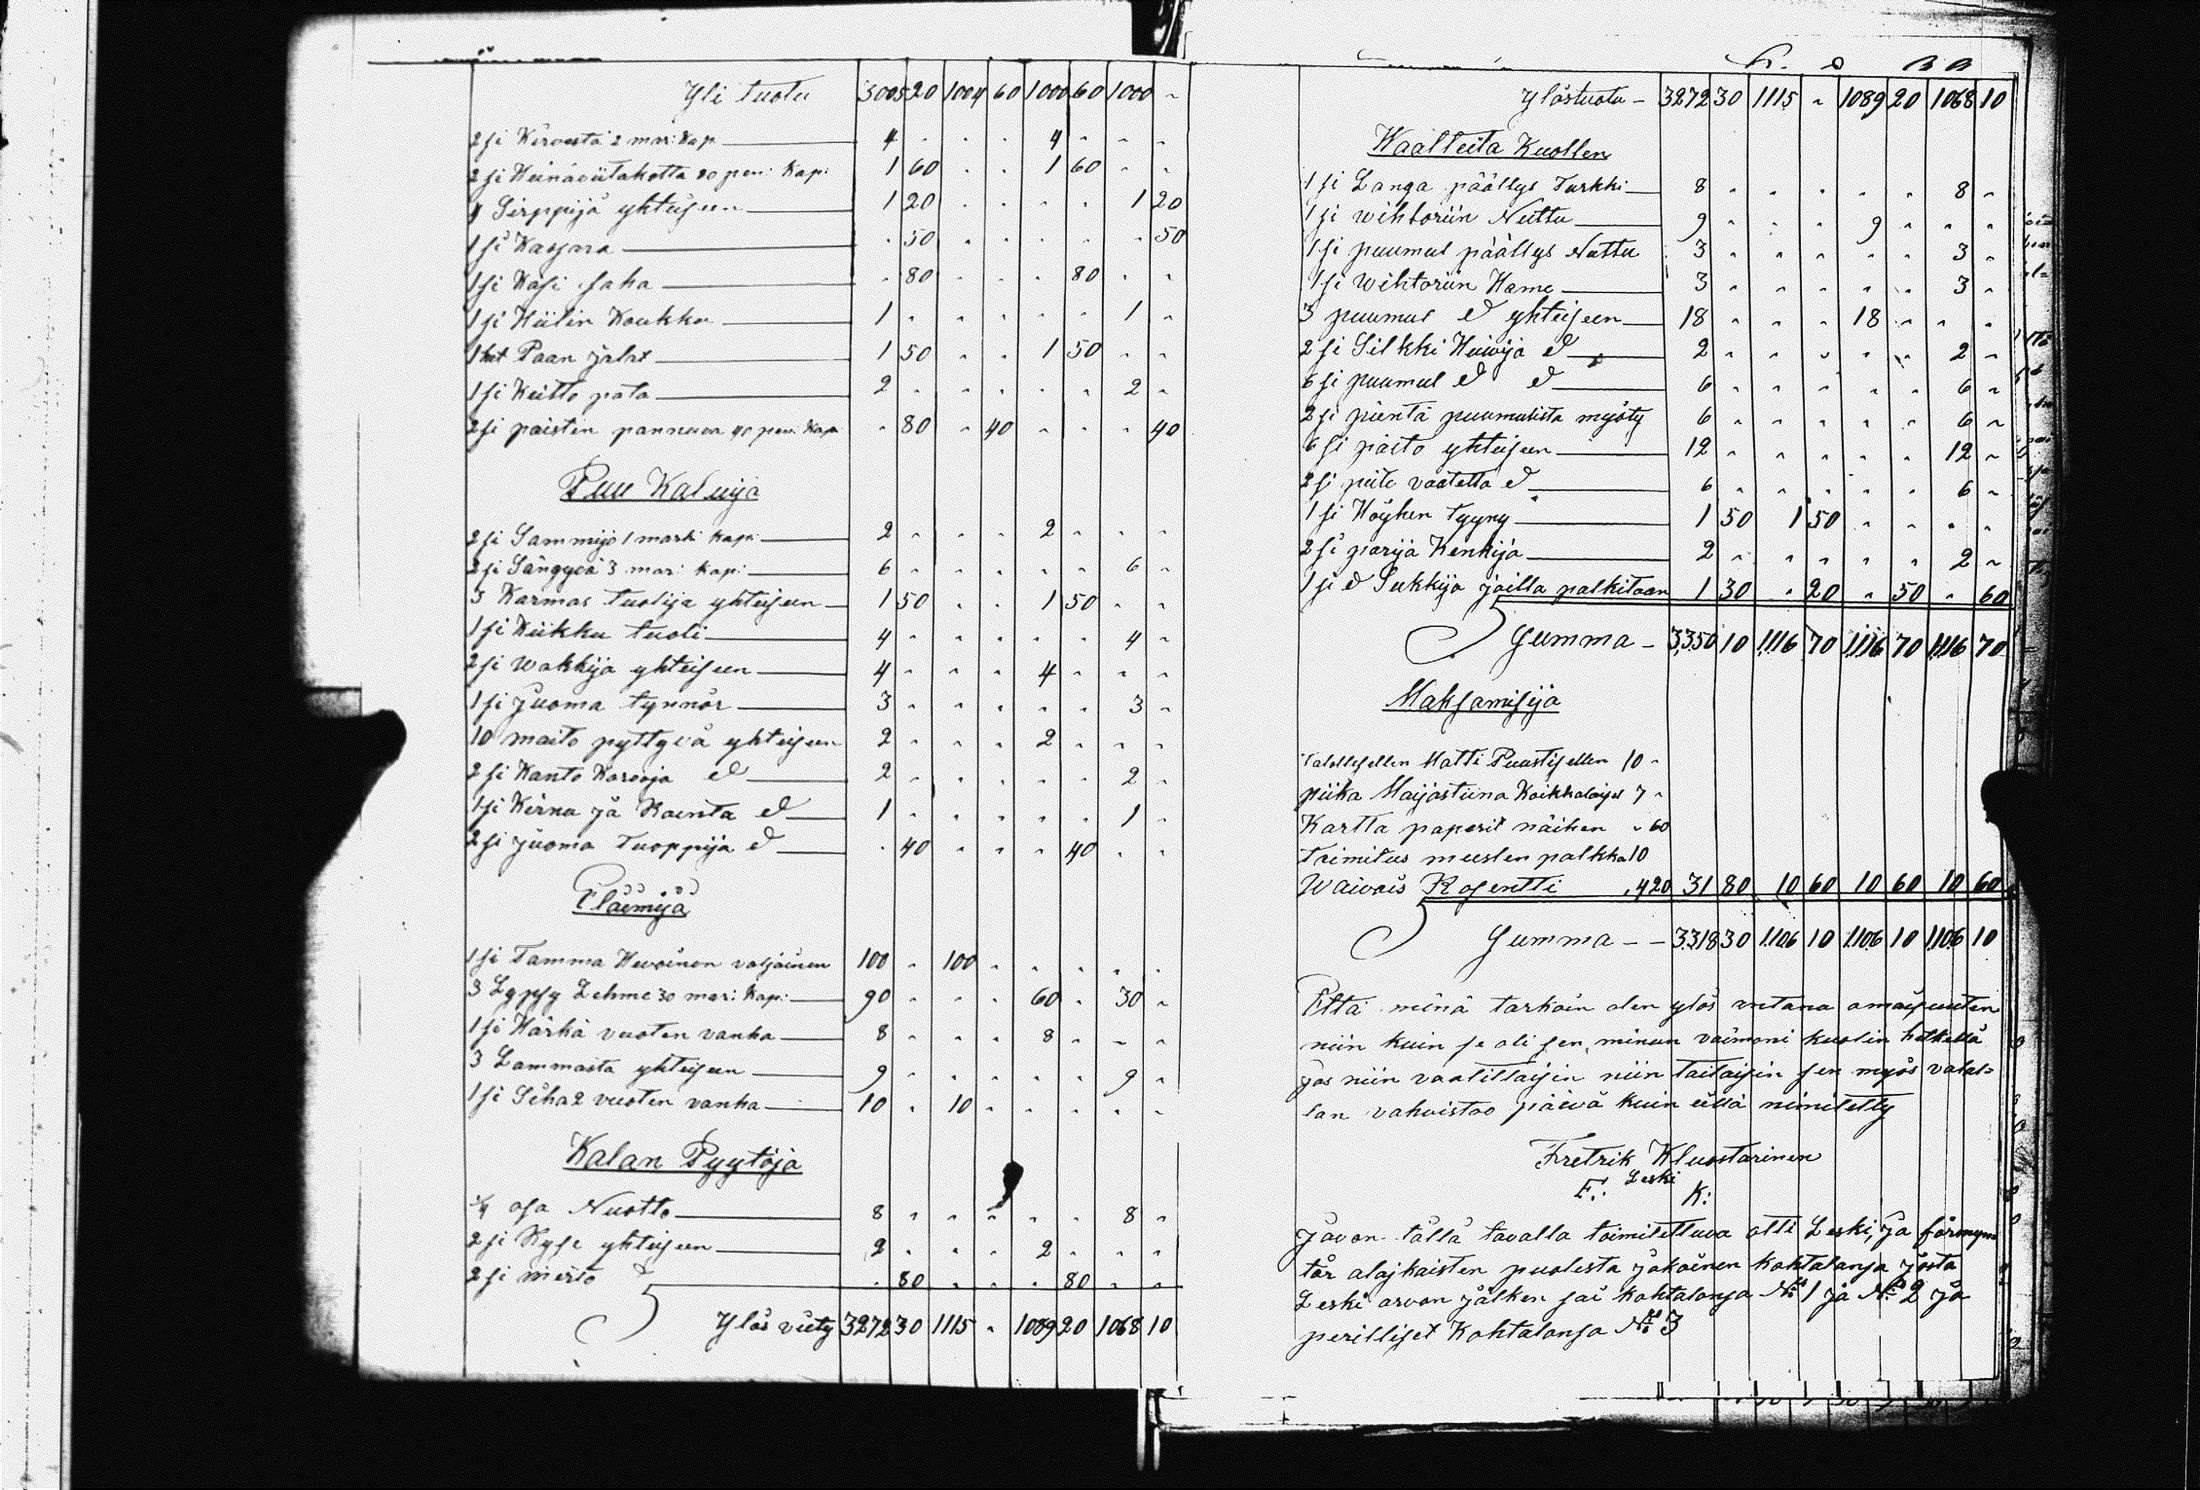 Yli tuotu 3005 20 1004 60 1000 60 1000 -
2 si Kirvestä 2 mar: Kap 4 - - - 4 - - -
2 si Heinäviitakotta 80 pen: Kap: 1 60 - - 1 60 - -
4 Sirppijä yhteiseen 1 20 - - - - 1 20
1 si Kassara - 50 - - - - - 50
1 si Käsi saha - 80 - - - 80 - -
1 si Hiilin Koukku 1 - - - - - 1 -
1 Paan jalat 1 50 - - 1 50 - -
1 si Keitto pata 2 - - - - - 2 -
2 si paistin pannuva 40 pen: Kap: - 80 - 40 - - - 40
Puu Kaluija
2 si Sammijo 1 marki Kap: 2 - - - 2 - - -
2 si Sängyvä 3 mar: Kap: 6 - - - - - 6 -
3 Karmas tuolija yhteiseen 1 50 - - 1 50 - -
1 si Kiikku tuoli 4 - - - - - 4 -
2 si Wakkija yhteiseen 4 - - - 4 - - -
1 si Juoma tynnör 3 - - - - - 3 -
10 maito pyttyvä yhteiseen 2 - - - 2 - - -
2 si Kanto Korvoja d 2 - - - - - 2 -
1 si Kirnu ja Raenta d 1 - - - - - 1 -
2 si Juoma Tuoppija d - 40 - - - 40 - -
Eläimijä
1 si Tamma Hevoinen valjainen 100 - 100 - - - - -
3 Lypsy Lehmä 30 mar: Kap: 90 - - - 60 - 30 -
1 si Härkä vuoten vanha 8 - - - 8 - - -
3 Lammasta yhteiseen 9 - - - - - 9 -
1 si Sika 2 vuoten vanha 10 - 10 - - - - -
Kalan Pyytöjä
1/4 osa Nuotto 8 - - - - - 8 -
2 si Ryse yhteiseen 2 - - - 2 - - -
2 si mertö - 80 - - - 80 - -
Ylös viety 3272 30 1115 - 1089 20 1068 10
Ylöstuotu - 3272 30 1115 - 1089 20 1068 10
Waatteita Kuollen
1 si Langa päällys Turkki 8 - - - - - 8 -
1 si Wihtoriin Nuttu 9 - - - 9 - - -
1 si puumul päällys Nuttu 3 - - - - - 3 -
1 si Wihtoriin Hame 3 - - - - - 3 -
3 puumul d yhteiseen 18 - - - 18 - - -
2 si Silkki Huivija d 2 - - - - - 2 -
6 si puumul d d 6 - - - - - 6 -
2 si pientä puumulista myöty 6 - - - - - 6 -
6 si paito yhteiseen 12 - - - - - 12 -
2 si piito vaatetta d 6 - - - - - 6 -
1 si Höyhen tyyny 1 50 1 50 - - - -
2 si parija Kenkijä 2 - - - - - 2 -
1 si d Sukkija joilla palkitaan 1 30 - 20 - 50 - 60
Summa - 3,350 10 1,116 70 1,116 70 1,116 70
Maksamisija
Talollisellen Matti Puustisellen 10 -
piika Maijastiina Koikkalaiset 7 -
Kartta paperit näihen - 60
Toimitus miesten palkka 10
Waivais Rosentti , 4 20 31 80 10 60 10 60 10 60
Summa - - 3,318 30 1,106 10 1,106 10 1,106 10
Että minä tarkoin olen ylös antana omaisuuten
niin kuin se oli sen minun vaimoni kuolin hetkellä
jos niin vaatittaisin niin taitaisin sen myös valal=
lan vahvistaa päivä kuin eillä nimitetty
Fretrik Kluostarinen
Leski
F: K:
Javon tällä tavalla toimitettuva otti Leski, ja förmyn
tär alaikaisten puolesta jokainen Kohtalonsa josta
Leski arvon jälken sai kohtalonsa No 1 ja No 2 ja
perilliset Kohtalonsa No 3